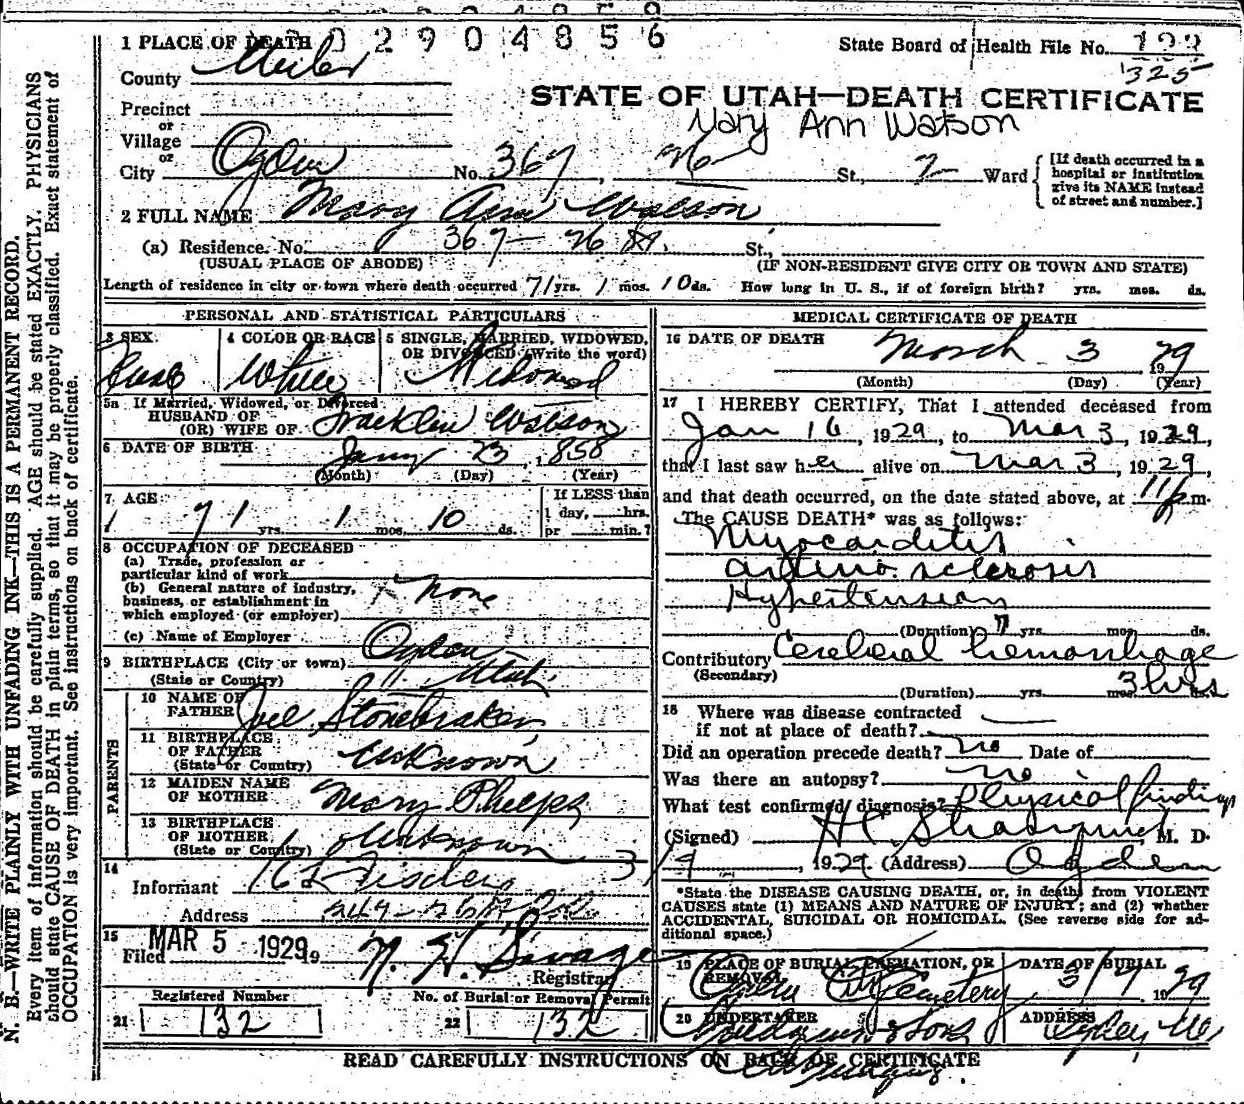 02904856
1 PLACE OF DEATH
State Board of Health File No.
325
County Weber
STATE OF UTAH—DEATH CERTIFICATE
Mary Ann Watson
Precinct
or
Village
or
City Ogden No. 367, 26 St., 2 Ward
[If death occurred in a
hospital or institution
give its NAME instead
of street and number.]
2 FULL NAME Mary Ann Watson
(a) Residence. No. 367—26 St. St.,
(USUAL PLACE OF ABODE) (IF NON-RESIDENT GIVE CITY OR TOWN AND STATE)
Length of residence in city or town where death occurred 71 yrs. 1 mos. 10 ds. How long in U. S., if of foreign birth? yrs. mos. ds.
PERSONAL AND STATISTICAL PARTICULARS
3 SEX
4 COLOR OR RACE White
5 SINGLE, MARRIED, WIDOWED,
OR DIVORCED (Write the word)
Widowed
5a If Married, Widowed, or Divorced
HUSBAND OF
(OR) WIFE OF Watson
6 DATE OF BIRTH 23, 1858
(Month) (Day) (Year)
7 AGE
71 yrs. 1 mos. 10 ds.
If LESS than
1 day, hrs.
or min.?
8 OCCUPATION OF DECEASED
(a) Trade, profession or
particular kind of work
(b) General nature of industry,
business, or establishment in
which employed (or employer)
None
(c) Name of Employer
9 BIRTHPLACE (City or town) Ogden
(State or Country) Utah
PARENTS
10 NAME OF
FATHER Joel Stonebraker
11 BIRTHPLACE
OF FATHER
(State or Country) Unknown
12 MAIDEN NAME
OF MOTHER Mary Phelps
13 BIRTHPLACE
OF MOTHER
(State or Country) Unknown
14
Informant
Address
15
Filed MAR 5 1929 19
Savage
Registrar
Registered Number
21 132
No. of Burial or Removal Permit
22 132
MEDICAL CERTIFICATE OF DEATH
16 DATE OF DEATH March 3 1929
(Month) (Day) (Year)
17 I HEREBY CERTIFY, That I attended deceased from
Jan 16, 1929, to Mar 3, 1929,
that I last saw her alive on Mar 3, 1929,
and that death occurred, on the date stated above, at 11 p m.
The CAUSE DEATH* was as follows:
Myocarditis
arterio sclerosis
Hypertension
(Duration) yrs. mos. ds.
Contributory Cerebral hemorrhage
(Secondary)
(Duration) yrs. mos. 3 hrs
18 Where was disease contracted
if not at place of death?
Did an operation precede death? no Date of
Was there an autopsy? no
What test confirmed diagnosis? Physical findings
(Signed) M. D.
3/4, 1929 (Address) Ogden
*State the DISEASE CAUSING DEATH, or, in deaths from VIOLENT
CAUSES state (1) MEANS AND NATURE OF INJURY; and (2) whether
ACCIDENTAL, SUICIDAL OR HOMICIDAL. (See reverse side for ad-
ditional space.)
19 PLACE OF BURIAL, CREMATION, OR
REMOVAL
Ogden City Cemetery
DATE OF BURIAL
3/7 1929
20 UNDERTAKER
& Sons
ADDRESS
READ CAREFULLY INSTRUCTIONS ON BACK OF CERTIFICATE
N. B.—WRITE PLAINLY WITH UNFADING INK—THIS IS A PERMANENT RECORD.
Every item of information should be carefully supplied. AGE should be stated EXACTLY. PHYSICIANS
should state CAUSE OF DEATH in plain terms, so that it may be properly classified. Exact statement of
OCCUPATION is very important. See instructions on back of certificate.